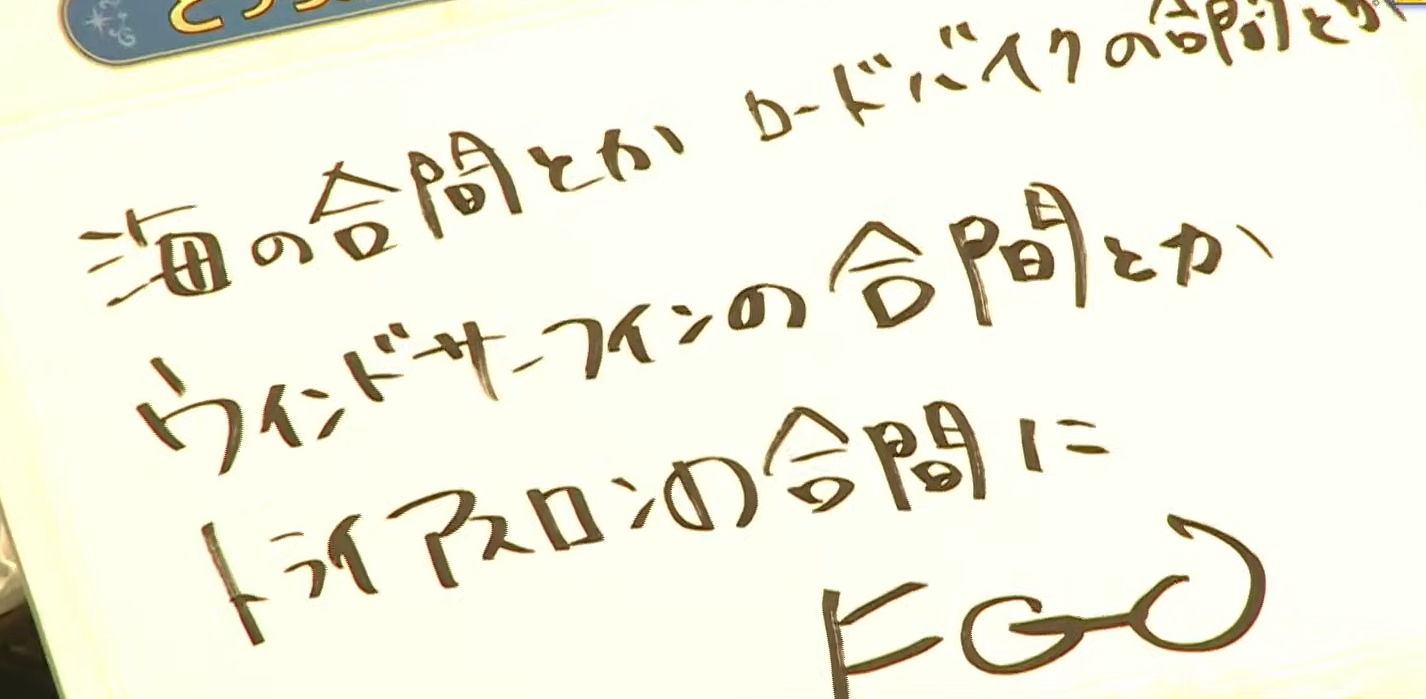 海の合間とか ロードバイクの合間とか
ウインドサーフィンの合間とか
トライアスロンの合間に
FGO